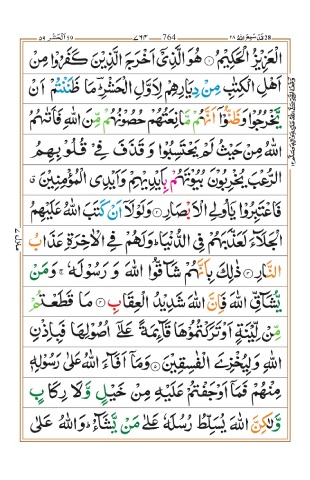 قد سمع الله ٢٨ 28 764 ٧٦٤ الحشر ٥٩
الْعَزِيْزُ الْحَكِيْمُ ۝ هُوَ الَّذِىْۤ اَخْرَجَ الَّذِيْنَ كَفَرُوْا مِنْ
اَهْلِ الْكِتٰبِ مِنْ دِيَارِهِمْ لِاَوَّلِ الْحَشْرِ ؔؕ مَا ظَنَنْتُمْ اَنْ
يَّخْرُجُوْا وَظَنُّوْۤا اَنَّهُمْ مَّانِعَتُهُمْ حُصُوْنُهُمْ مِّنَ اللّٰهِ فَاَتٰىهُمُ
اللّٰهُ مِنْ حَيْثُ لَمْ يَحْتَسِبُوْا وَ قَذَفَ فِىْ قُلُوْبِهِمُ
الرُّعْبَ يُخْرِبُوْنَ بُيُوْتَهُمْ بِاَيْدِيْهِمْ وَاَيْدِى الْمُؤْمِنِيْنَ ق
فَاعْتَبِرُوْا يٰۤاُولِى الْاَبْصَارِ ۝ وَلَوْلَاۤ اَنْ كَتَبَ اللّٰهُ عَلَيْهِمُ
الْجَلَآءَ لَعَذَّبَهُمْ فِى الدُّنْيَا ؕ وَلَهُمْ فِى الْاٰخِرَةِ عَذَابُ
النَّارِ ۝ ذٰلِكَ بِاَنَّهُمْ شَآقُّوا اللّٰهَ وَ رَسُوْلَهٗ ۚ وَمَنْ
يُّشَآقِّ اللّٰهَ فَاِنَّ اللّٰهَ شَدِيْدُ الْعِقَابِ ۝ مَا قَطَعْتُمْ
مِّنْ لِّيْنَةٍ اَوْ تَرَكْتُمُوْهَا قَآئِمَةً عَلٰۤى اُصُوْلِهَا فَبِاِذْنِ
اللّٰهِ وَلِيُخْزِىَ الْفٰسِقِيْنَ ۝ وَمَاۤ اَفَآءَ اللّٰهُ عَلٰى رَسُوْلِهٖ
مِنْهُمْ فَمَاۤ اَوْجَفْتُمْ عَلَيْهِ مِنْ خَيْلٍ وَّلَا رِكَابٍ
وَّلٰكِنَّ اللّٰهَ يُسَلِّطُ رُسُلَهٗ عَلٰى مَنْ يَّشَآءُ ؕ وَاللّٰهُ عَلٰى